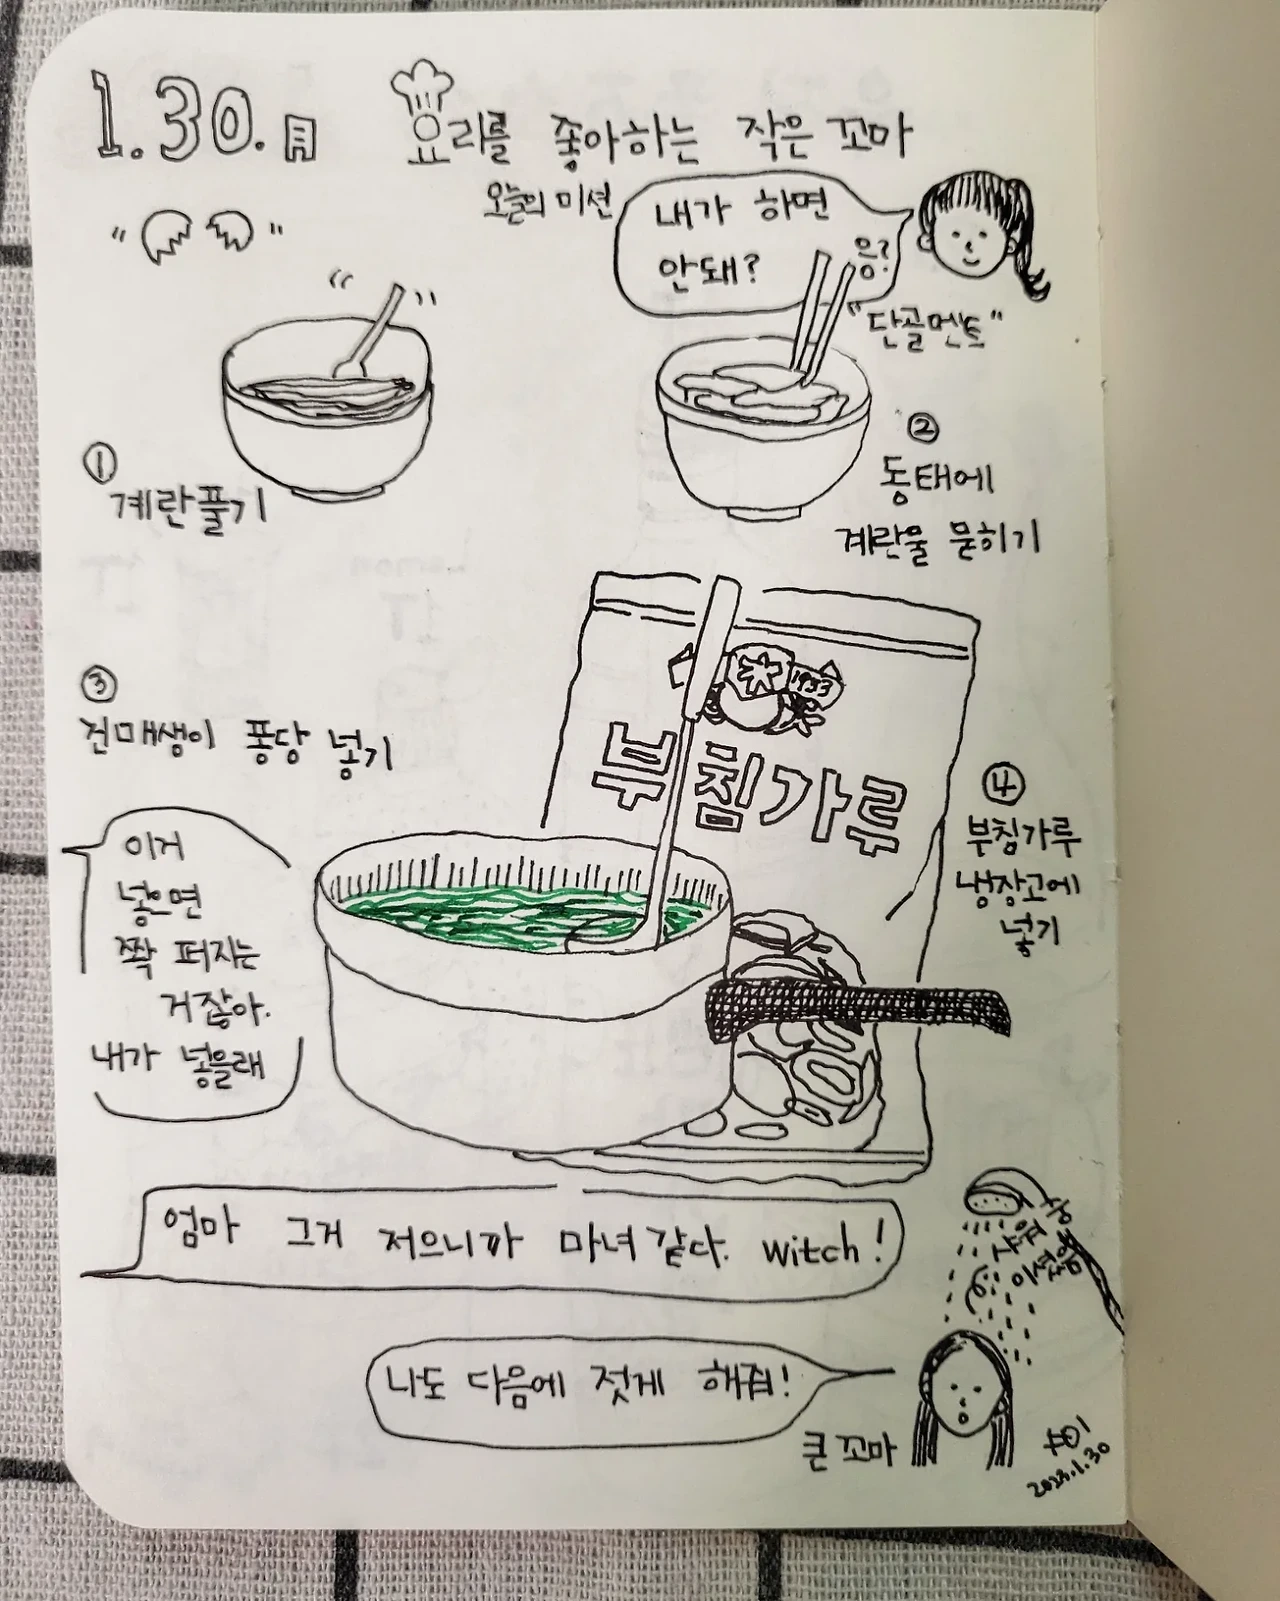 1.30.月
요리를 좋아하는 작은 꼬마
오늘의 미션
내가 하면
안돼? 응?
"단골멘트"
①
계란풀기
②
동태에
계란물 묻히기
③
건매생이 퐁당 넣기
1953
부침가루
④
부침가루
냉장고에
넣기
이거
넣으면
쫙 퍼지는
거잖아.
내가 넣을래
엄마 그거 저으니까 마녀 같다. witch!
샤워 중
이셨음
나도 다음에 젓게 해줘!
큰 꼬마
2023.1.30